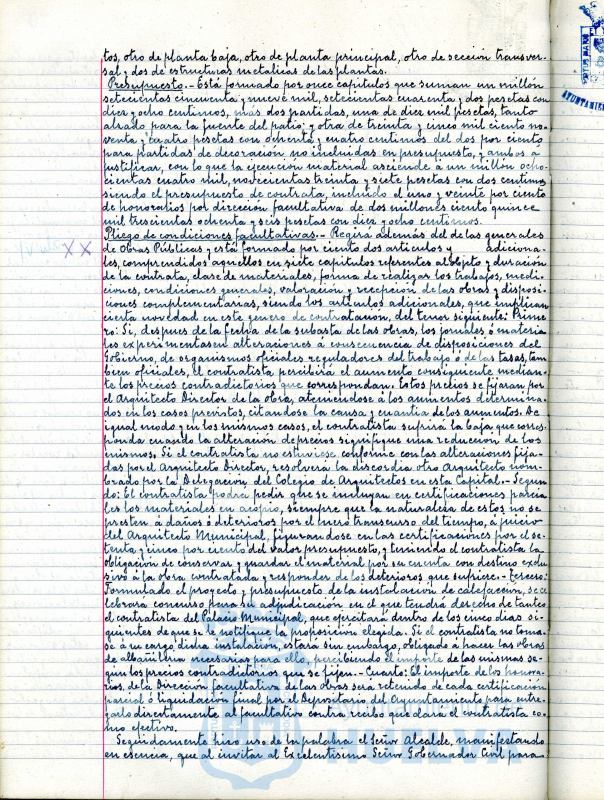 tos, otro de planta baja, otro de planta principal, otro de sección transver-
sal y dos de estructuras metalicas de las plantas.
Presupuesto.- Está formado por once capitulos que suman un millón
setecientos cincuenta y nueve mil, setecientas cuarenta y dos pesetas con
diez y ocho centimos, más dos partidas, una de diez mil pesetas, tanto
alzado para la fuente del patio; y otra de treinta y cinco mil ciento no-
venta y cuatro pesetas con ochenta y cuatro centimos del dos por ciento
para partidas de decoración no incluidas en presupuesto, y ambas á
justificar, con lo que la ejecución material asciende á un millón ocho-
cientas cuatro mil, novecientas treinta y siete pesetas con dos centimos
siendo el presupuesto de contrata, incluido el uno y veinte por ciento
de honorarios por dirección facultativa de dos millones ciento quince
mil trescientas ochenta y seis pesetas con diez y ocho centimos.
Pliego de condiciones facultativas.- Regirá además del de las generales
de Obras Públicas y está formado por ciento dos articulos y adiciona-
les, comprendidos aquellos en siete capitulos referentes al objeto y duración
de la contrata, clase de materiales, forma de realizar los trabajos, medi-
ciones, condiciones generales, valoración y recepción de las obras y disposi-
ciones complementarias, siendo los articulos adicionales, que implican
cierta novedad en este genero de contratación, del tenor siguiente: Prime-
ro: Si, despues de la fecha de la subasta de las obras, los jornales ó materia-
les experimentasen alteraciones á consecuencia de disposiciones del
Gobierno, de organismos oficiales reguladores del trabajo ó de las tasas, tam-
bien oficiales, el contratista percibirá el aumento consiguiente median-
te los precios contradictorios que correspondan. Estos precios se fijaran por
el Arquitecto Director de la obra, ateniendose á los aumentos determina-
dos en los casos previstos, citandose la causa y cuantia de los aumentos. De
igual modo y en los mismos casos, el contratista sufrirá la baja que corres-
ponda cuando la alteración de precios signifique una reducción de los
mismos. Si el contratista no estuviese conforme con las alteraciones fija-
das por el Arquitecto Director, resolverá la discordia otro Arquitecto nom-
brado por la Delegación del Colegio de Arquitectos en esta Capital.- Segun-
do: El contratista podrá pedir que se incluyan en certificaciones parcia-
les los materiales en acopio, siempre que la naturaleza de estos no se
presten á daños ó deterioros por el mero transcurso del tiempo, á juicio
del Arquitecto Municipal, figurandose en las certificaciones por el se-
tenta y cinco por ciento del valor presupuesto, y teniendo el contratista la
obligación de conservar y guardar el material por su cuenta con destino exclu-
sivo á la obra contratada y responder de los deterioros que sufriere.- Tercero:
Formulado el proyecto y presupuesto de la instalación de calefacción, se ce-
lebrará concurso para su adjudicación en el que tendrá derecho de tanteo
el contratista del Palacio Municipal, que ejercitará dentro de los cinco dias si-
guientes de que se le notifique la proposición elegida. Si el contratista no toma-
se á su cargo dicha instalación, estará sin embargo, obligado á hacer las obras
de albañileria necesarias para ello, percibiendo el importe de las mismas se-
gun los precios contradictorios que se fijen.- Cuarto: El importe de los honora-
rios, de la Dirección facultativa de las obras será retenido de cada certificación
parcial ó liquidación final por el Depositario del Ayuntamiento para entre-
garlo directamente al facultativo contra recibo que dará el contratista co-
mo efectivo.
Seguidamente hizo uso de la palabra el Señor Alcalde, manifestando
en esencia, que al invitar al Excelentisimo Señor Gobernador Civil para